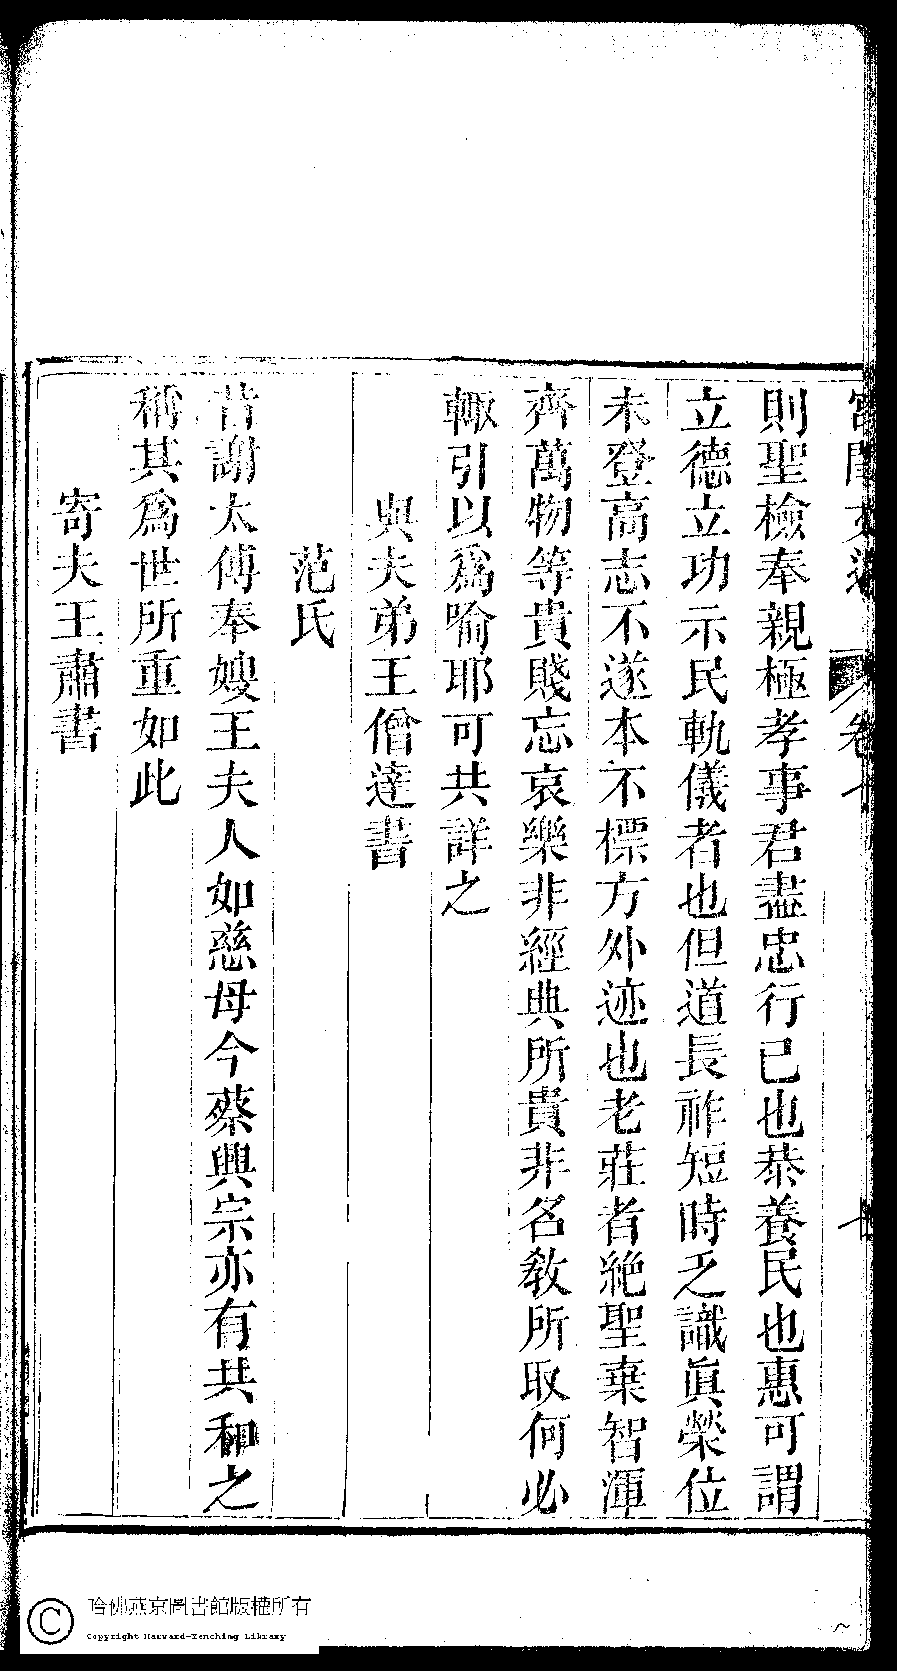 則聖檢奉親極孝事君盡忠行已也恭養民也惠可謂
立德立功示民軌儀者也但道長祚短時乏識眞榮位
未登高志不遂本不標方外迹也老莊者絶聖棄智渾
齊萬物等貴賤忘哀樂非經典所貴非名敎所取何必
輙引以爲喻耶可共詳之
與夫弟王僧達書
范氏
昔謝太傅奉嫂王夫人如慈母今蔡興宗亦有共和之
稱其爲世所重如此
寄夫王肅書
哈佛燕京圖書館版權所有
Copyright Harvard-Yenching Library